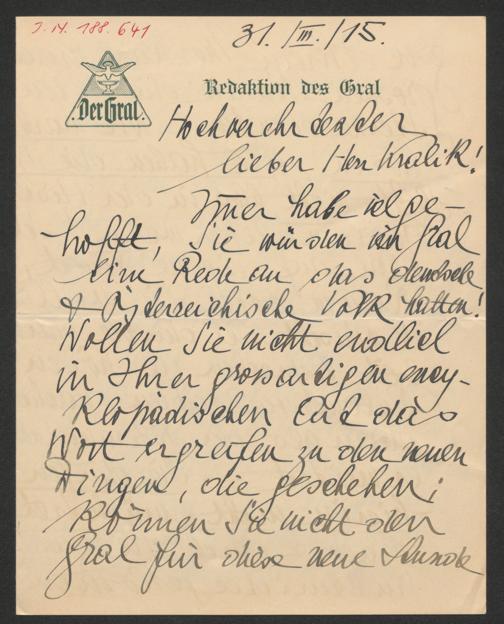 J. N. 188.641
31./III./15.
Der Gral.
Redaktion des Gral
Hochverehrtester
lieber Herr Kralik!
Immer habe ich ge-
hofft, Sie würden im Gral
eine Rede an das deutsche
& österreichische Volk halten!
Wollen Sie nicht endlich
in Ihrer grossartigen ency-
klopädischen Art das
Wort ergreifen zu den neuen
Dingen, die geschehen;
können Sie nicht den
Gral für diese neue